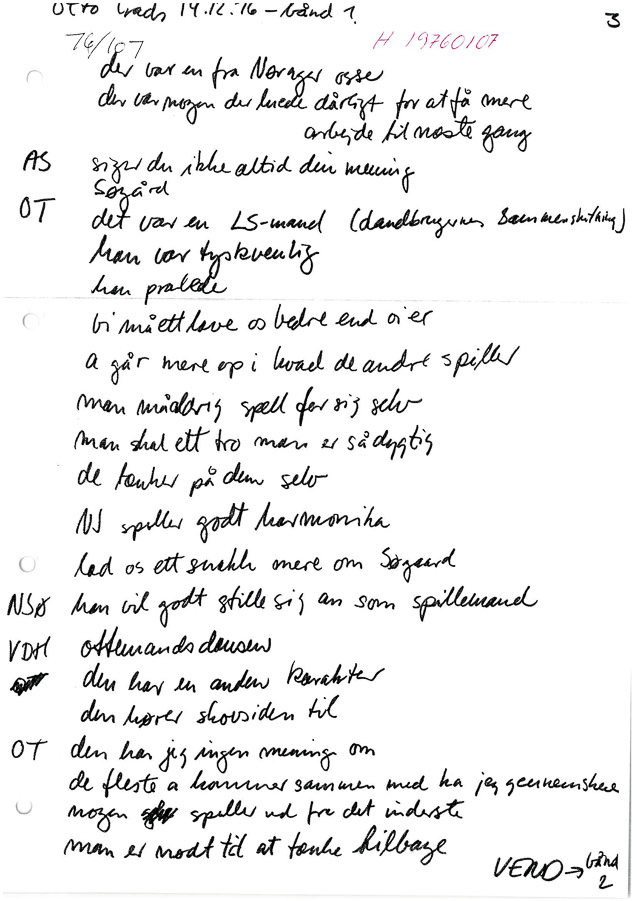 Otto Trads 14.12.76 - bånd 1.
3
76/107
H 19760107
der var en fra Nørager osse
der var nogen der luede dårligt for at få mere
arbejde til næste gang
AS siger du ikke altid din mening
Søgård
OT det var en LS-mand (Landbrugernes Sammenslutning)
han var tyskvenlig
han pralede
vi må ett lave os bedre end vi er
a går mere op i hvad de andre spiller
man må aldrig spell for sig selv
man skal ett tro man er så dygtig
de tænker på dem selv
NJ spiller godt harmonika
lad os ett snakk mere om Søgaard
NSØ han vil godt stille sig an som spillemand
VDH ottemandsdansen
den har en anden karakter
den hører skovsiden til
OT den har jeg ingen mening om
de fleste a kommer sammen med ka jeg gennemskue
nogen spiller ud fra det inderste
man er nødt til at tænke tilbage
VEND → bånd 2